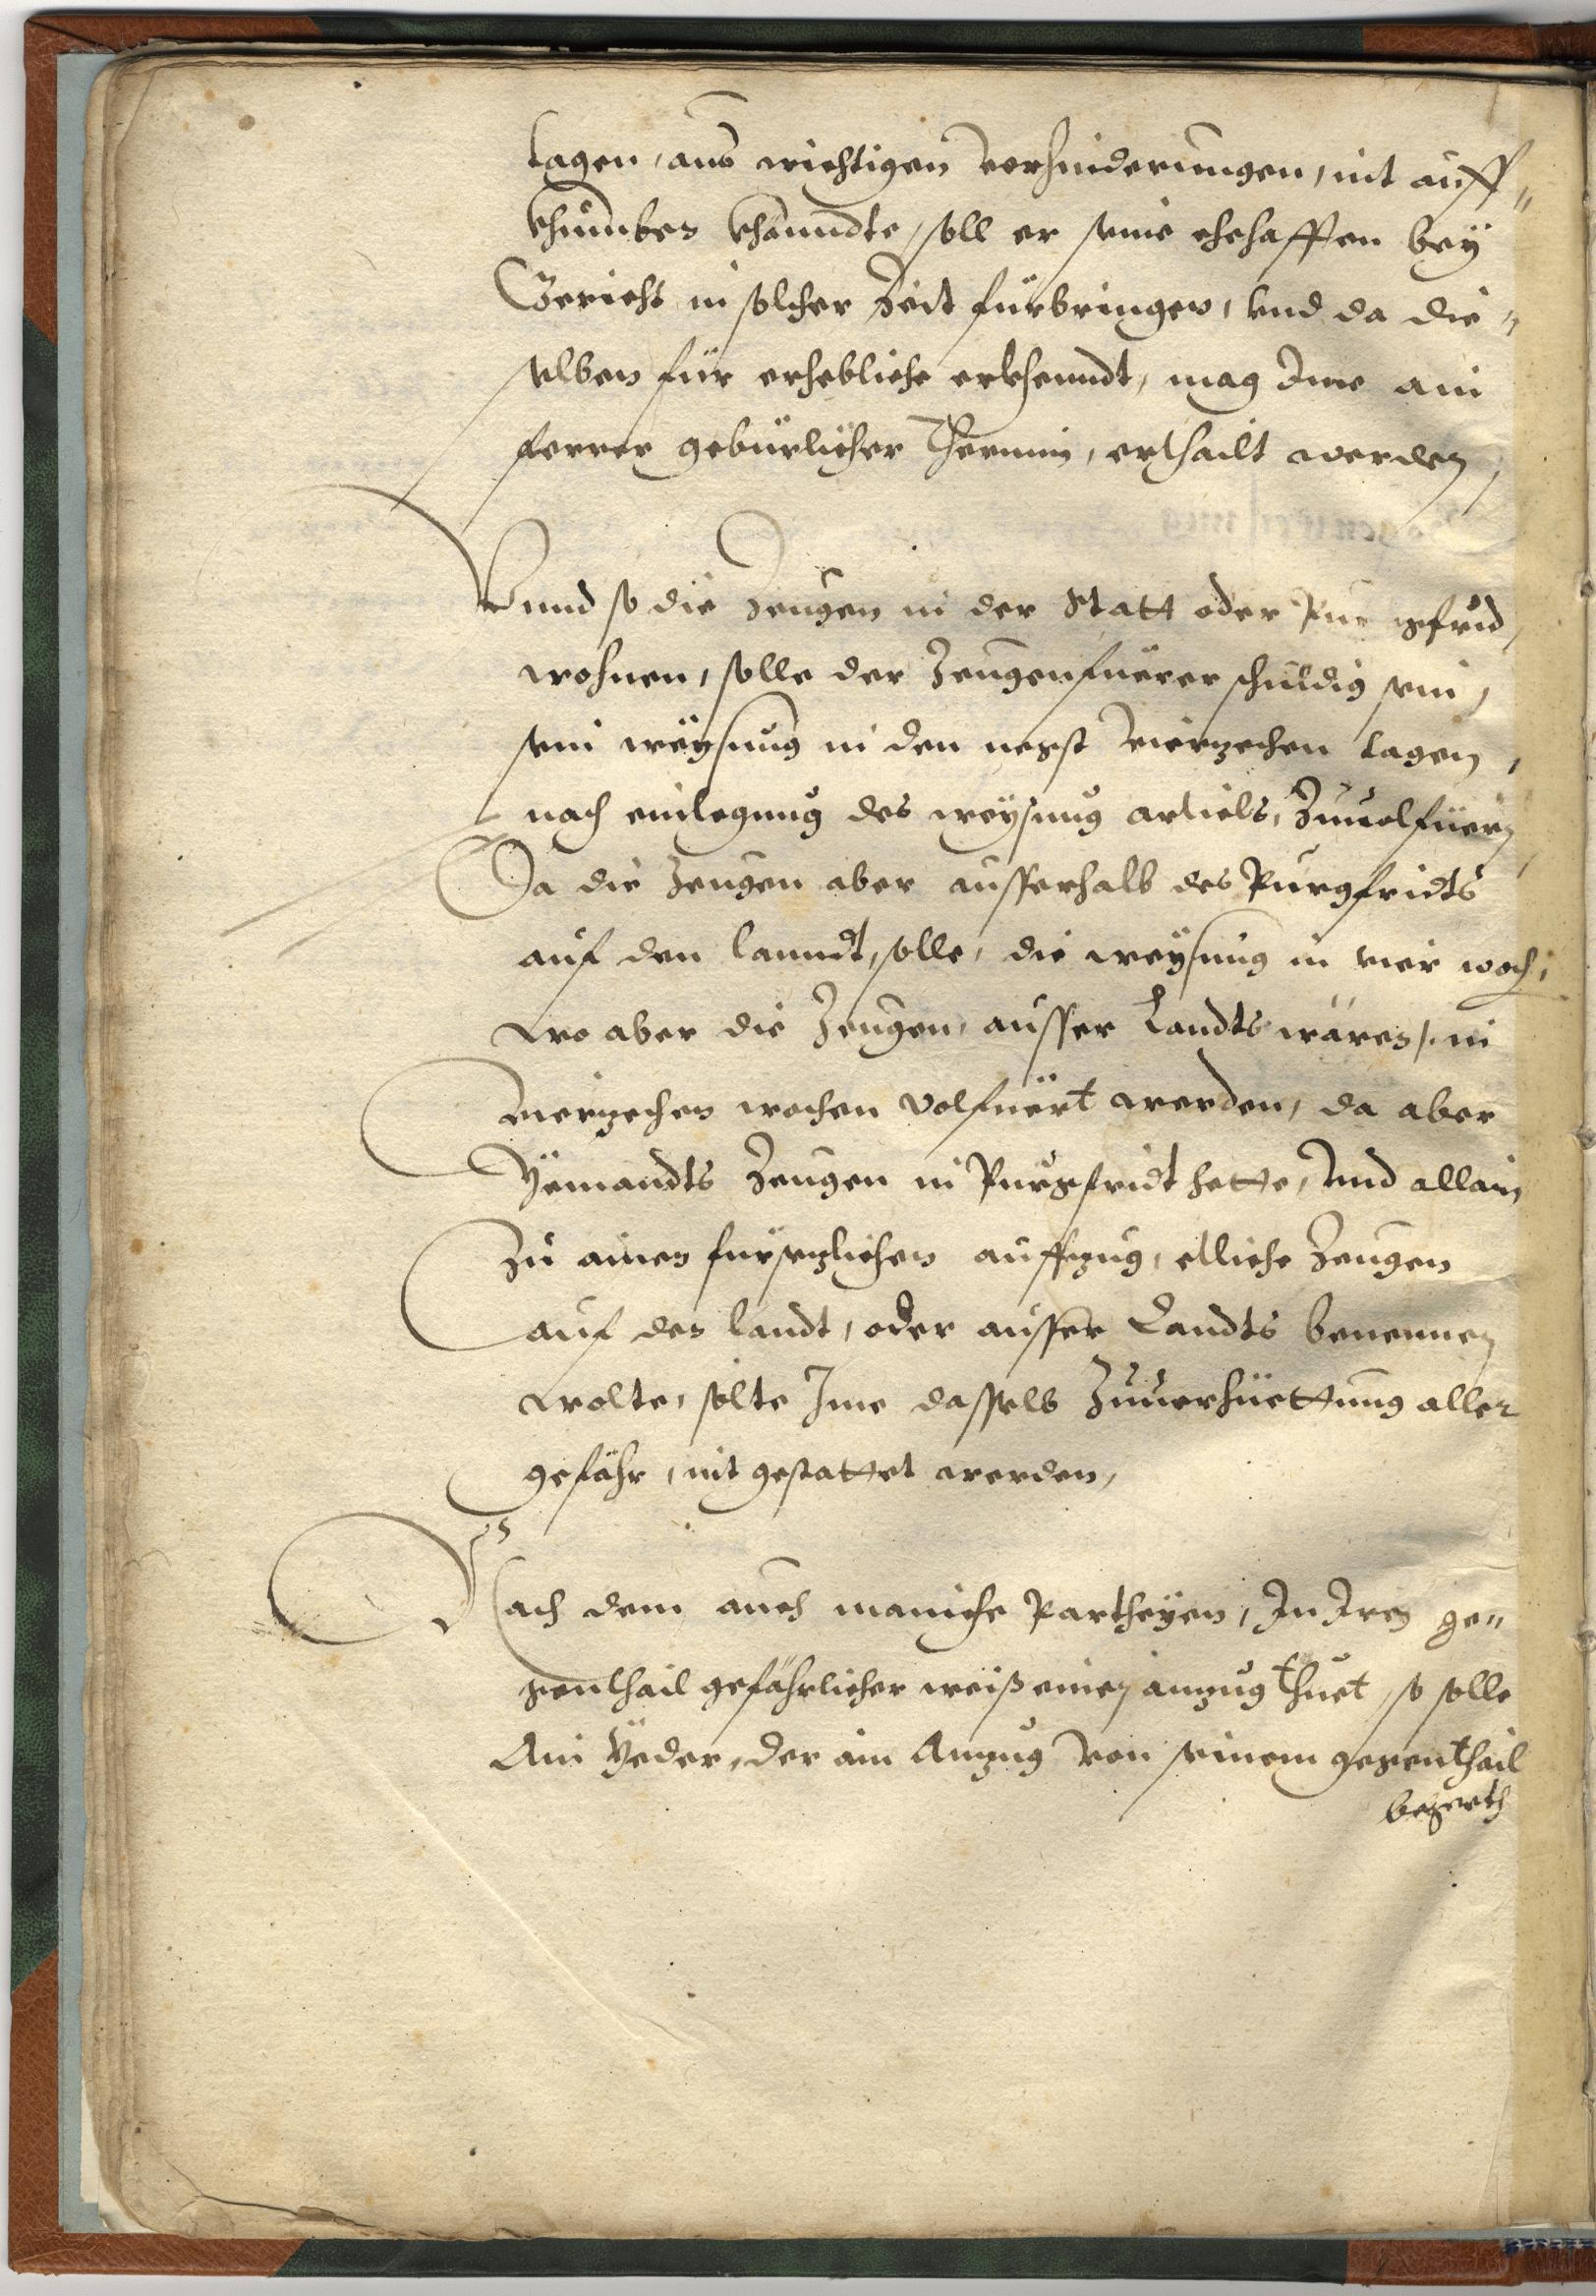 tagen, aus wichtigen verhinderungen, nit auff=
khumben khönndte, soll er seine ehehafften bey
Gericht in solcher Zeit fürbringen, vnd da die=
selben für erhebliche erkhenndt, mag Ime ain
ferrer gebürlicher Thermin, erthailt werden,
Vnnd so die Zeugen in der Statt oder Purgfrid,
wohnen, solle der Zeugenfüerer schuldig sein,
sein weysung in den negst vierzechen tagen,
nach einlegung des weysung articls, Zuuolfüern,
Da die Zeugen aber ausserhalb des Purgfridts
auf den lanndt, solle, die weysung in vier woch,
wo aber die Zeugen, ausser Landts wären, in
vierzechen wochen volfüert werden, da aber
Yemandts Zeugen in Purgfridt hette, vnd allain
Zu ainen fürsezlichen auffzug, etliche Zeugen
auf den landt, oder ausser Landts benennen
wolte, solte Ime dasselb Zuuerhüettung aller
gefähr, nit gestattet werden,
Nach dem auch maniche Partheyen, In Iren ge=
genthail gefährlicher weiß einen anzug thuet, so solle
Ain Yeder, der ain Anzug von seinem gegenthail
begerth